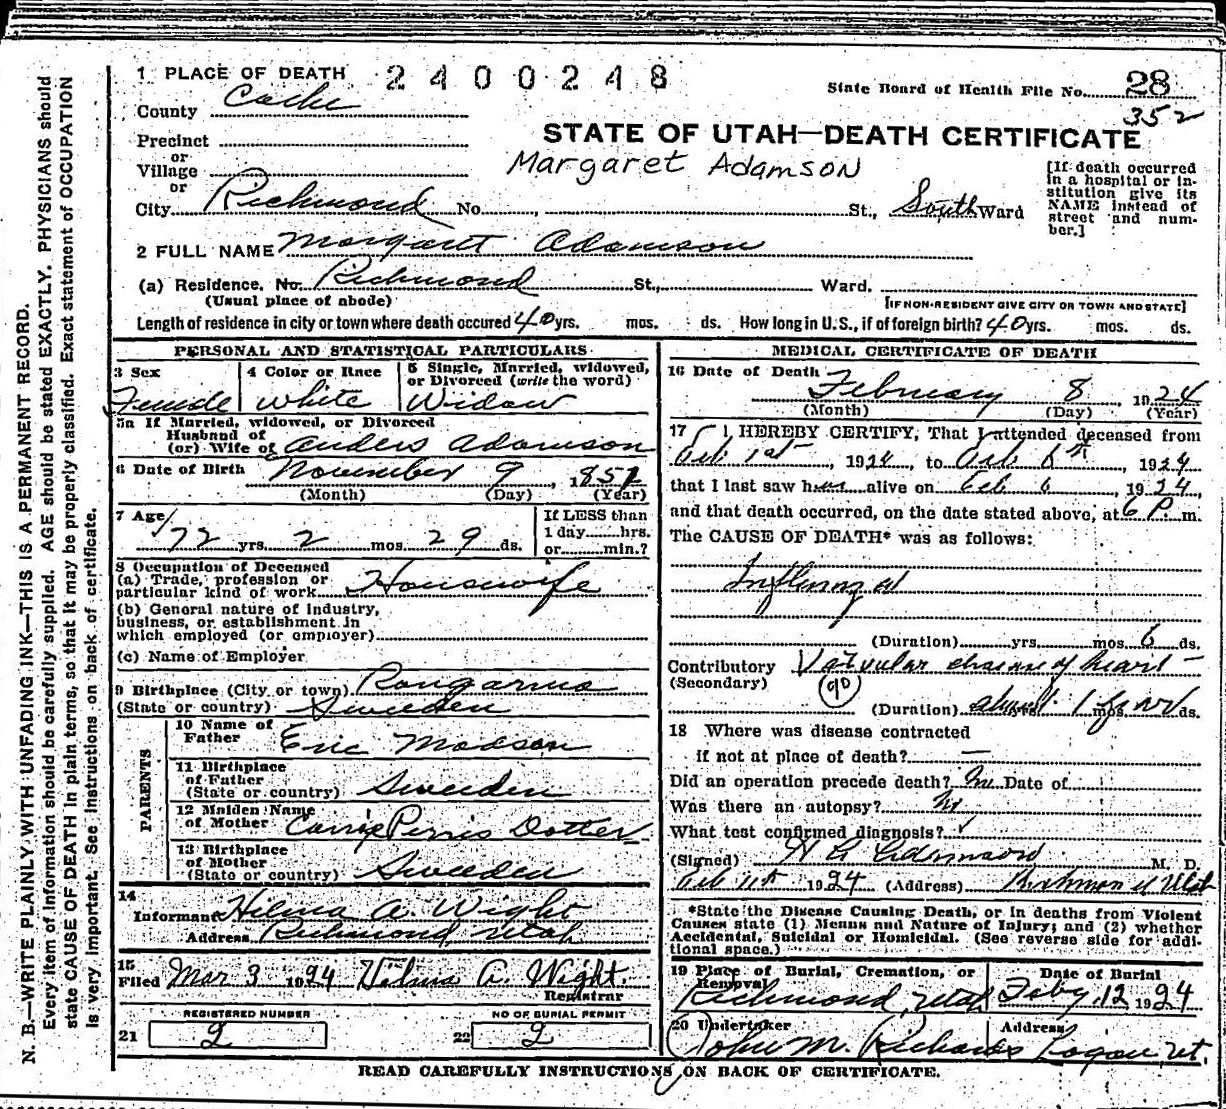 1 PLACE OF DEATH 2400248
State Board of Health File No. 28
County Cache
352
STATE OF UTAH—DEATH CERTIFICATE
Precinct
or
Village
or
Margaret Adamson
[If death occurred in a hospital or in-
stitution give its
NAME instead of
street and num-
ber.]
City Richmond No. , St., South Ward
2 FULL NAME Margaret Adamson
(a) Residence. No. Richmond St., Ward.
(Usual place of abode) [IF NON-RESIDENT GIVE CITY OR TOWN AND STATE]
Length of residence in city or town where death occured 40 yrs. mos. ds. How long in U.S., if of foreign birth? 40 yrs. mos. ds.
PERSONAL AND STATISTICAL PARTICULARS
3 Sex 4 Color or Race 5 Single, Married, widowed,
or Divorced (write the word)
Female white Widow
5a If Married, widowed, or Divorced
Husband of
(or) Wife of Anders Adamson
6 Date of Birth November 9, 1851
(Month) (Day) (Year)
7 Age
72 yrs. 2 mos. 29 ds.
If LESS than
1 day hrs.
or min.?
8 Occupation of Deceased
(a) Trade, profession or
particular kind of work Housewife
(b) General nature of Industry,
business, or establishment in
which employed (or employer)
(c) Name of Employer
9 Birthplace (City or town)
(State or country) Sweden
PARENTS
10 Name of
Father Eric Madson
11 Birthplace
of Father
(State or country) Sweden
12 Maiden Name
of Mother Carrie Perris Dotter
13 Birthplace
of Mother
(State or country) Sweden
14
Informant Hilma A. Wight
Address Richmond Utah
15
Filed Mar 3 1924 Hilma A. Wight.
Registrar
REGISTERED NUMBER NO OF BURIAL PERMIT
21 2 22 2
MEDICAL CERTIFICATE OF DEATH
16 Date of Death
February 8 1924
(Month) (Day) (Year)
17 I HEREBY CERTIFY, That I attended deceased from
Feb 1st, 1924, to Feb 6th, 1924
that I last saw her alive on Feb 6, 1924,
and that death occurred, on the date stated above, at 6 P. m.
The CAUSE OF DEATH* was as follows:
Influenza
(Duration) yrs. mos. 6 ds.
Contributory Valvular disease of heart
(Secondary) 90
(Duration) about 1 year mos. ds.
18 Where was disease contracted
if not at place of death? —
Did an operation precede death? no Date of
Was there an autopsy? no
What test confirmed diagnosis?
(Signed) Adamson M. D.
Feb 11th 1924 (Address) Richmond Utah
*State the Disease Causing Death, or in deaths from Violent
Causes state (1) Means and Nature of Injury; and (2) whether
Accidental, Suicidal or Homicidal. (See reverse side for addi-
tional space.)
19 Place of Burial, Cremation, or Date of Burial
Removal
Richmond, Utah Feby, 12 1924
20 Undertaker Address
John M. Richards Logan Ut.
READ CAREFULLY INSTRUCTIONS ON BACK OF CERTIFICATE.
N. B.—WRITE PLAINLY WITH UNFADING INK—THIS IS A PERMANENT RECORD.
Every item of information should be carefully supplied. AGE should be stated EXACTLY. PHYSICIANS should
state CAUSE OF DEATH in plain terms, so that it may be properly classified. Exact statement of OCCUPATION
is very important. See instructions on back of certificate.